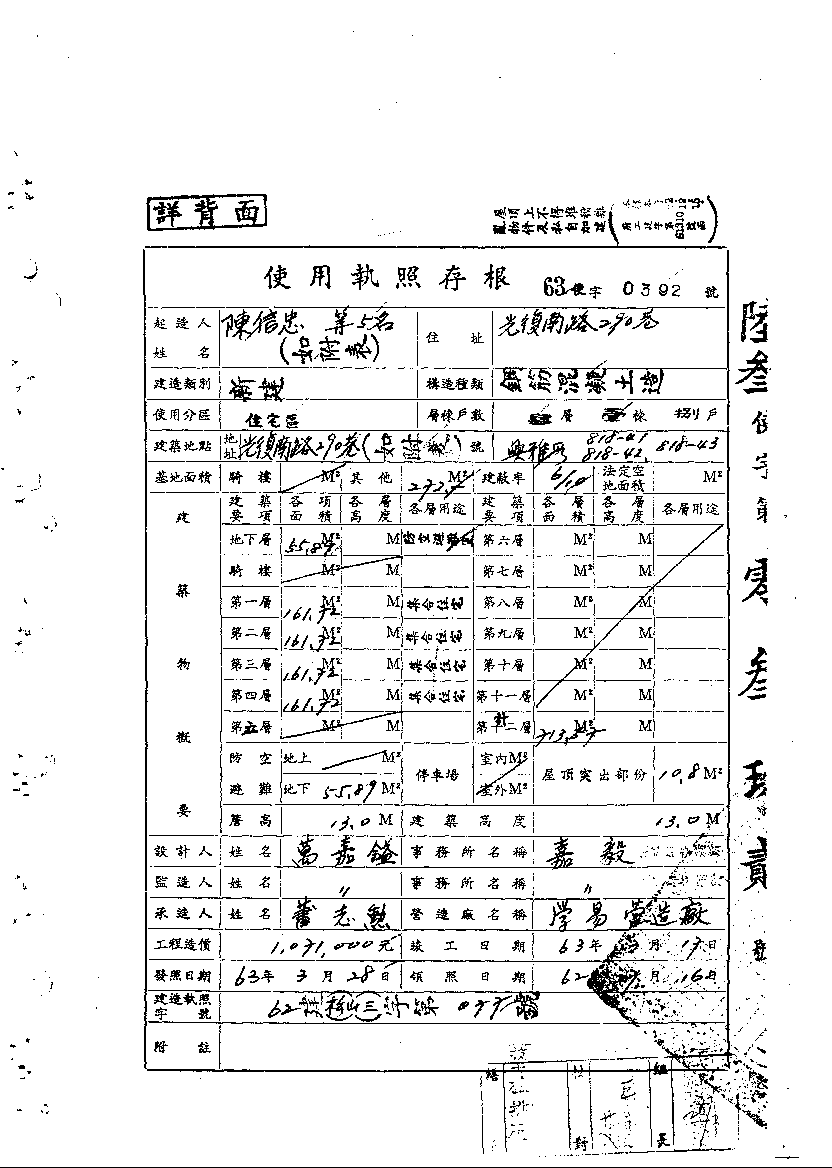 詳背面
屋頂上不得堆積雜
亂物件及私自加建
使用執照存根 63使字 0392 號
起造人姓名 陳信忠 等5名 (如附表) 住址 光復南路290巷
建造類別 新建 構造種類 鋼筋混凝土造
使用分區 住宅區 層棟戶數 層 棟 捌戶
建築地點 地址 光復南路290巷(如附表)號 興雅段 818-41 818-42, 818-43
基地面積 騎樓 M² 其他 M² 建蔽率 6/10 法定空地面積 M²
建築物概要 建築要項 各項面積 各層高度 各層用途 建築要項 各層面積 各層高度 各層用途
地下層 55.89 M² M 第六層 M² M
騎樓 M² M 第七層 M² M
第一層 161.72 M² M 集合住宅 第八層 M² M
第二層 161.72 M² M 集合住宅 第九層 M² M
第三層 161.72 M² M 集合住宅 第十層 M² M
第四層 161.72 M² M 集合住宅 第十一層 M² M
第五層 M² M 計 M² M
防空避難 地上 M² 停車場 室內M² 屋頂突出部份 10.8 M²
地下 55.89 M² 室外M²
簷高 13.0 M 建築高度 13.0 M
設計人 姓名 萬嘉鎰 事務所名稱 嘉毅
監造人 姓名 〃 事務所名稱 〃
承造人 姓名 蕭志 營造廠名稱 學易營造廠
工程造價 1,071,000元 竣工日期 63年 月 17日
發照日期 63年 3月 28日 領照日期 62 月 16日
建造執照字號 62建(松山)(三)字第 號
附註
陸叁使字第零叁玖貳
組長